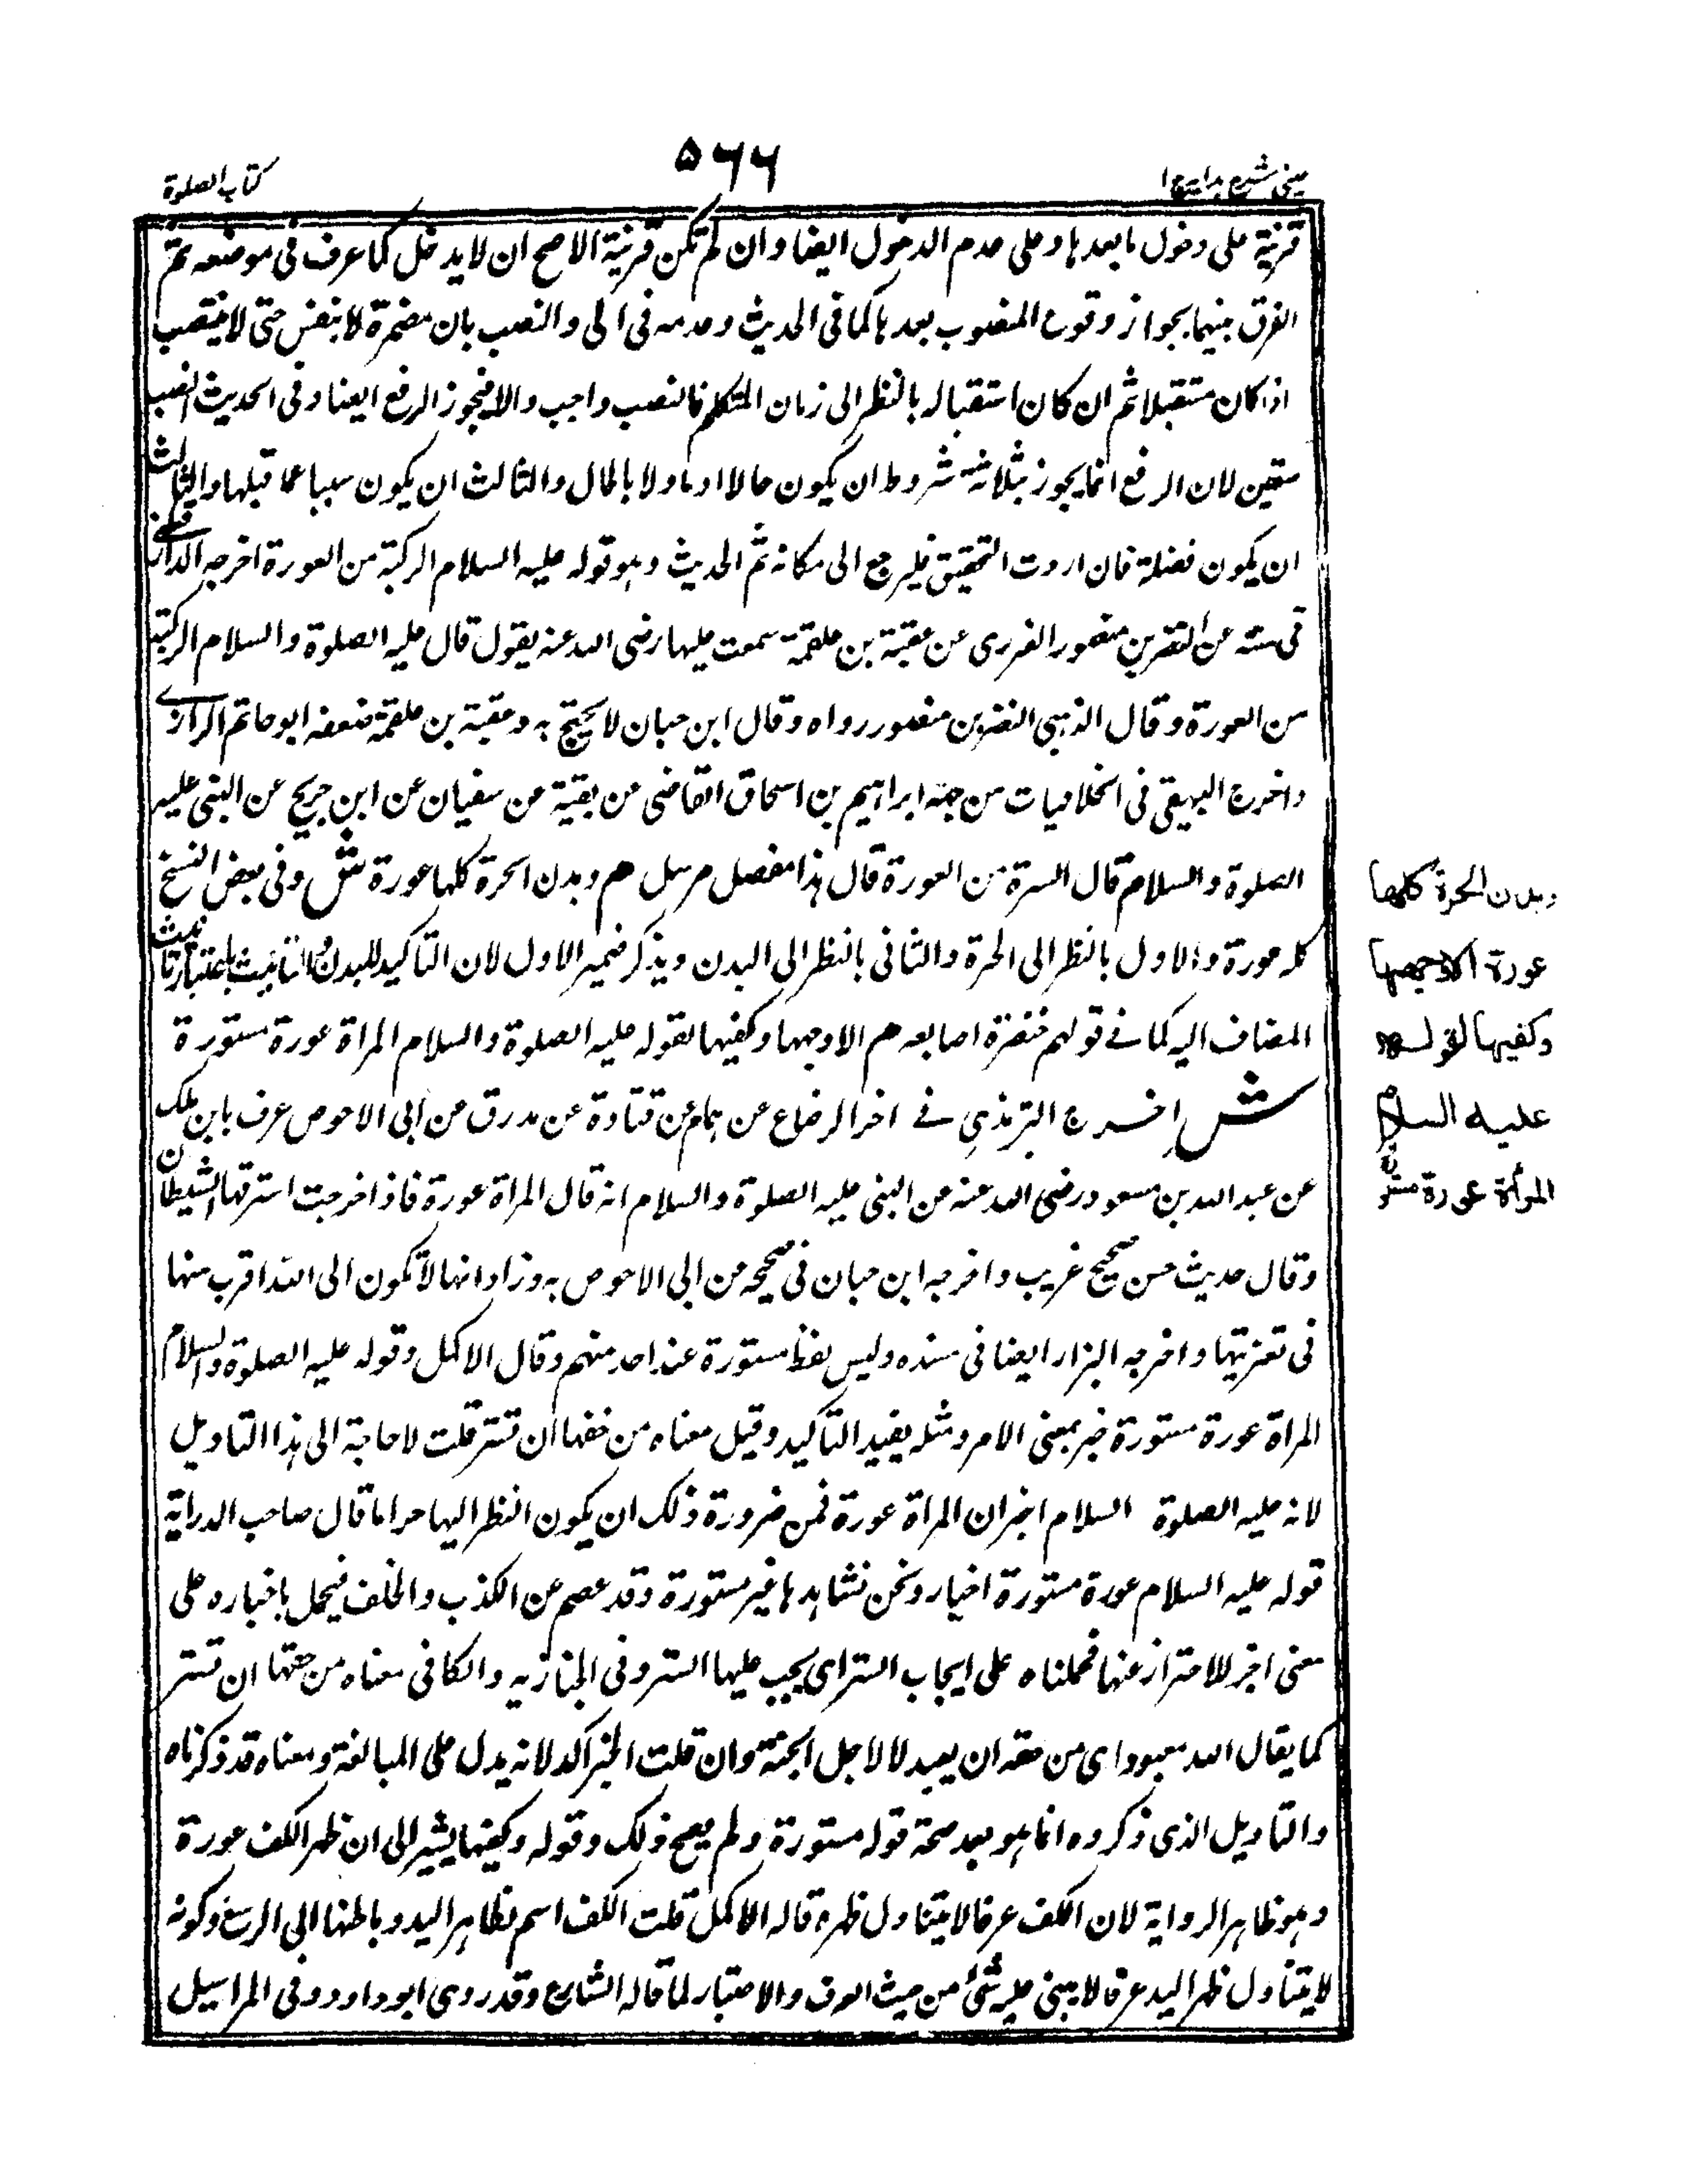 عینی شرح ہدایہ ج ا
۵۶۶
کتاب الصلوة
قرینة علی دخول ما بعدہا وعلی عدم الدخول ایضا وان لم تکن قرینة الاصح ان لا یدخل کما عرف فی موضعہ ثم
الفرق بینہما بجواز وقوع المنصوب بعدہا کما فی الحدیث وعدمہ فی الی والنصب بان مضمرة لا بنفس حتی لا ینتصب
اذا کان مستقبلا ثم ان کان استقبالہ بالنظر الی زمان التکلم فالنصب واجب والا فیجوز الرفع ایضا وفی الحدیث النصب
متعین لان الرفع انما یجوز بثلاثة شروط ان یکون حالا او ماولا بالحال والثالث ان یکون سببا عما قبلہا والثالث
ان یکون فضلة فان اردت التحقیق فلیرجع الی مکانہ ثم الحدیث وہو قولہ علیہ السلام الرکبة من العورة اخرجہ الدارقطنی
فی سننہ عن النضر بن منصور الفزری عن عقبة بن علقمة سمعت علیا رضی اللہ عنہ یقول قال علیہ الصلوة والسلام الرکبة
من العورة وقال الذہبی النضر بن منصور رواہ وقال ابن حبان لا یحتج بہ وعقبة بن علقمة ضعفہ ابو حاتم الرازی
واخرج البیہقی فی الخلافیات من جہة ابراہیم بن اسحاق القاضی عن بقیة عن سفیان عن ابن جریح عن النبی علیہ
الصلوة والسلام قال السرة من العورة قال ہذا مفصل مرسل ھم وبدن الحرة کلہا عورة ش وفی بعض النسخ
کلہ عورة والاول بالنظر الی الحرة والثانی بالنظر الی البدن ویذکر ضمیر الاول لان التاکید للبدن والتانیث باعتبار تانیث
المضاف الیہ کما فے قولہم خنضرة اصابعہ ھم الا وجہہا وکفیہا لقولہ علیہ الصلوة والسلام المراة عورة مستورة
ش اخرج الترمذی فے اخر الرضاع عن ہمام عن قتادة عن مدرق عن ابی الاحوص عرف بابن ملک
عن عبد اللہ بن مسعود رضی اللہ عنہ عن النبی علیہ الصلوة والسلام انہ قال المراة عورة فاذا خرجت استرقہا الشیطان
وقال حدیث حسن صحیح غریب واخرجہ ابن حبان فی صحیحہ عن ابی الاحوص بہ وزاد انہا لا تکون الی اللہ اقرب منہا
فی تعزیتہا واخرجہ البزار ایضا فی مسندہ ولیس لفظ مستورة عند احد منہم وقال الاکمل وقولہ علیہ الصلوة والسلام
المراة عورة مستورة خبر بمعنی الامر ومثلہ یفید التاکید وقیل معناہ من حقہا ان تستر قلت لا حاجة الی ہذا التاویل
لانہ علیہ الصلوة السلام اخبر ان المراة عورة فمن ضرورة ذلک ان یکون النظر الیہا حراما قال صاحب الدرایة
قولہ علیہ السلام عورة مستورة اخبار ونحن نشاہدہا غیر مستورة وقد عصم عن الکذب والخلف فیحمل باخبارہ علی
معنی اخر للاحتراز عنہا فحملناہ علی ایجاب الستر ای یجب علیہا الستر وفی الجنازیہ والکافی معناہ من حقہا ان تستر
کما یقال اللہ معبود ای من حقہ ان یعبد لا لاجل الجنة وان قلت الخبر آکد لانہ یدل علی المبالغة ومعناہ قد ذکرناہ
والتاویل الذی ذکروہ انما ہو بعد صحة قولہ مستورة ولم یصح ذلک وقولہ وکفیہا یشیر الی ان ظہر الکف عورة
وہو ظاہر الروایة لان الکف عرفا لا یتناول ظہرہ قالہ الاکمل قلت الکف اسم لظاہر الید وباطنہا الی الرسغ وکونہ
لا یتناول ظہر الید عرفا لا یبنی علیہ شئ من حیث العرف والاعتبار لما قالہ الشارع وقد روی ابو داوود فی المراسیل
وبدن الحرة کلها
عورة الا وجهها
وکفیها لقوله
علیه السلام
المرأة عورة مستورة